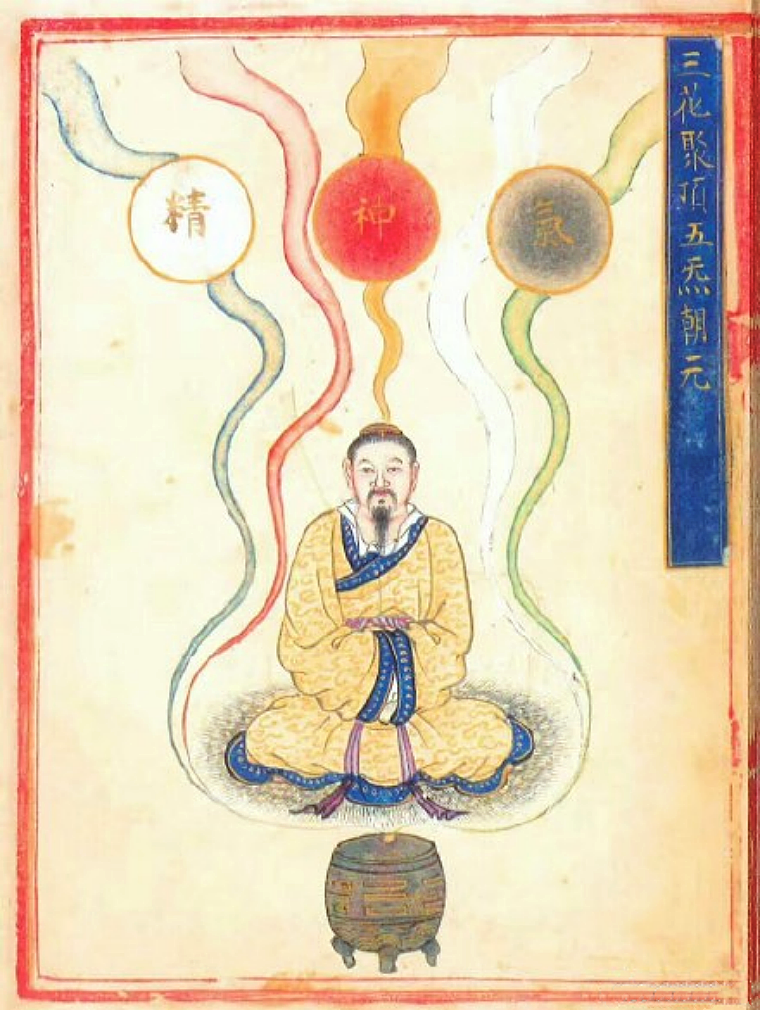 三花聚頂五炁朝元
精
神
氣